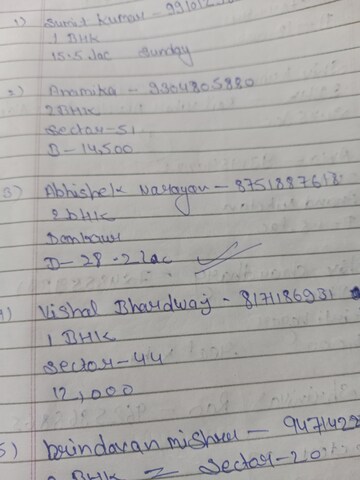 1) Sumit Kumar - 991012
1 BHK
15.5 Lac Sunday
2) Anamika - 9304805880
2BHK
Sector-51
D-14,500
3) Abhishek Narayan - 8751887618
2BHK
Dankaur
D-28.2 Lac
4) Vishal Bhardwaj - 8171186931
1 BHK
Sector-44
12,000
5) brindavan mishra - 9471422
BHK = Sector-20